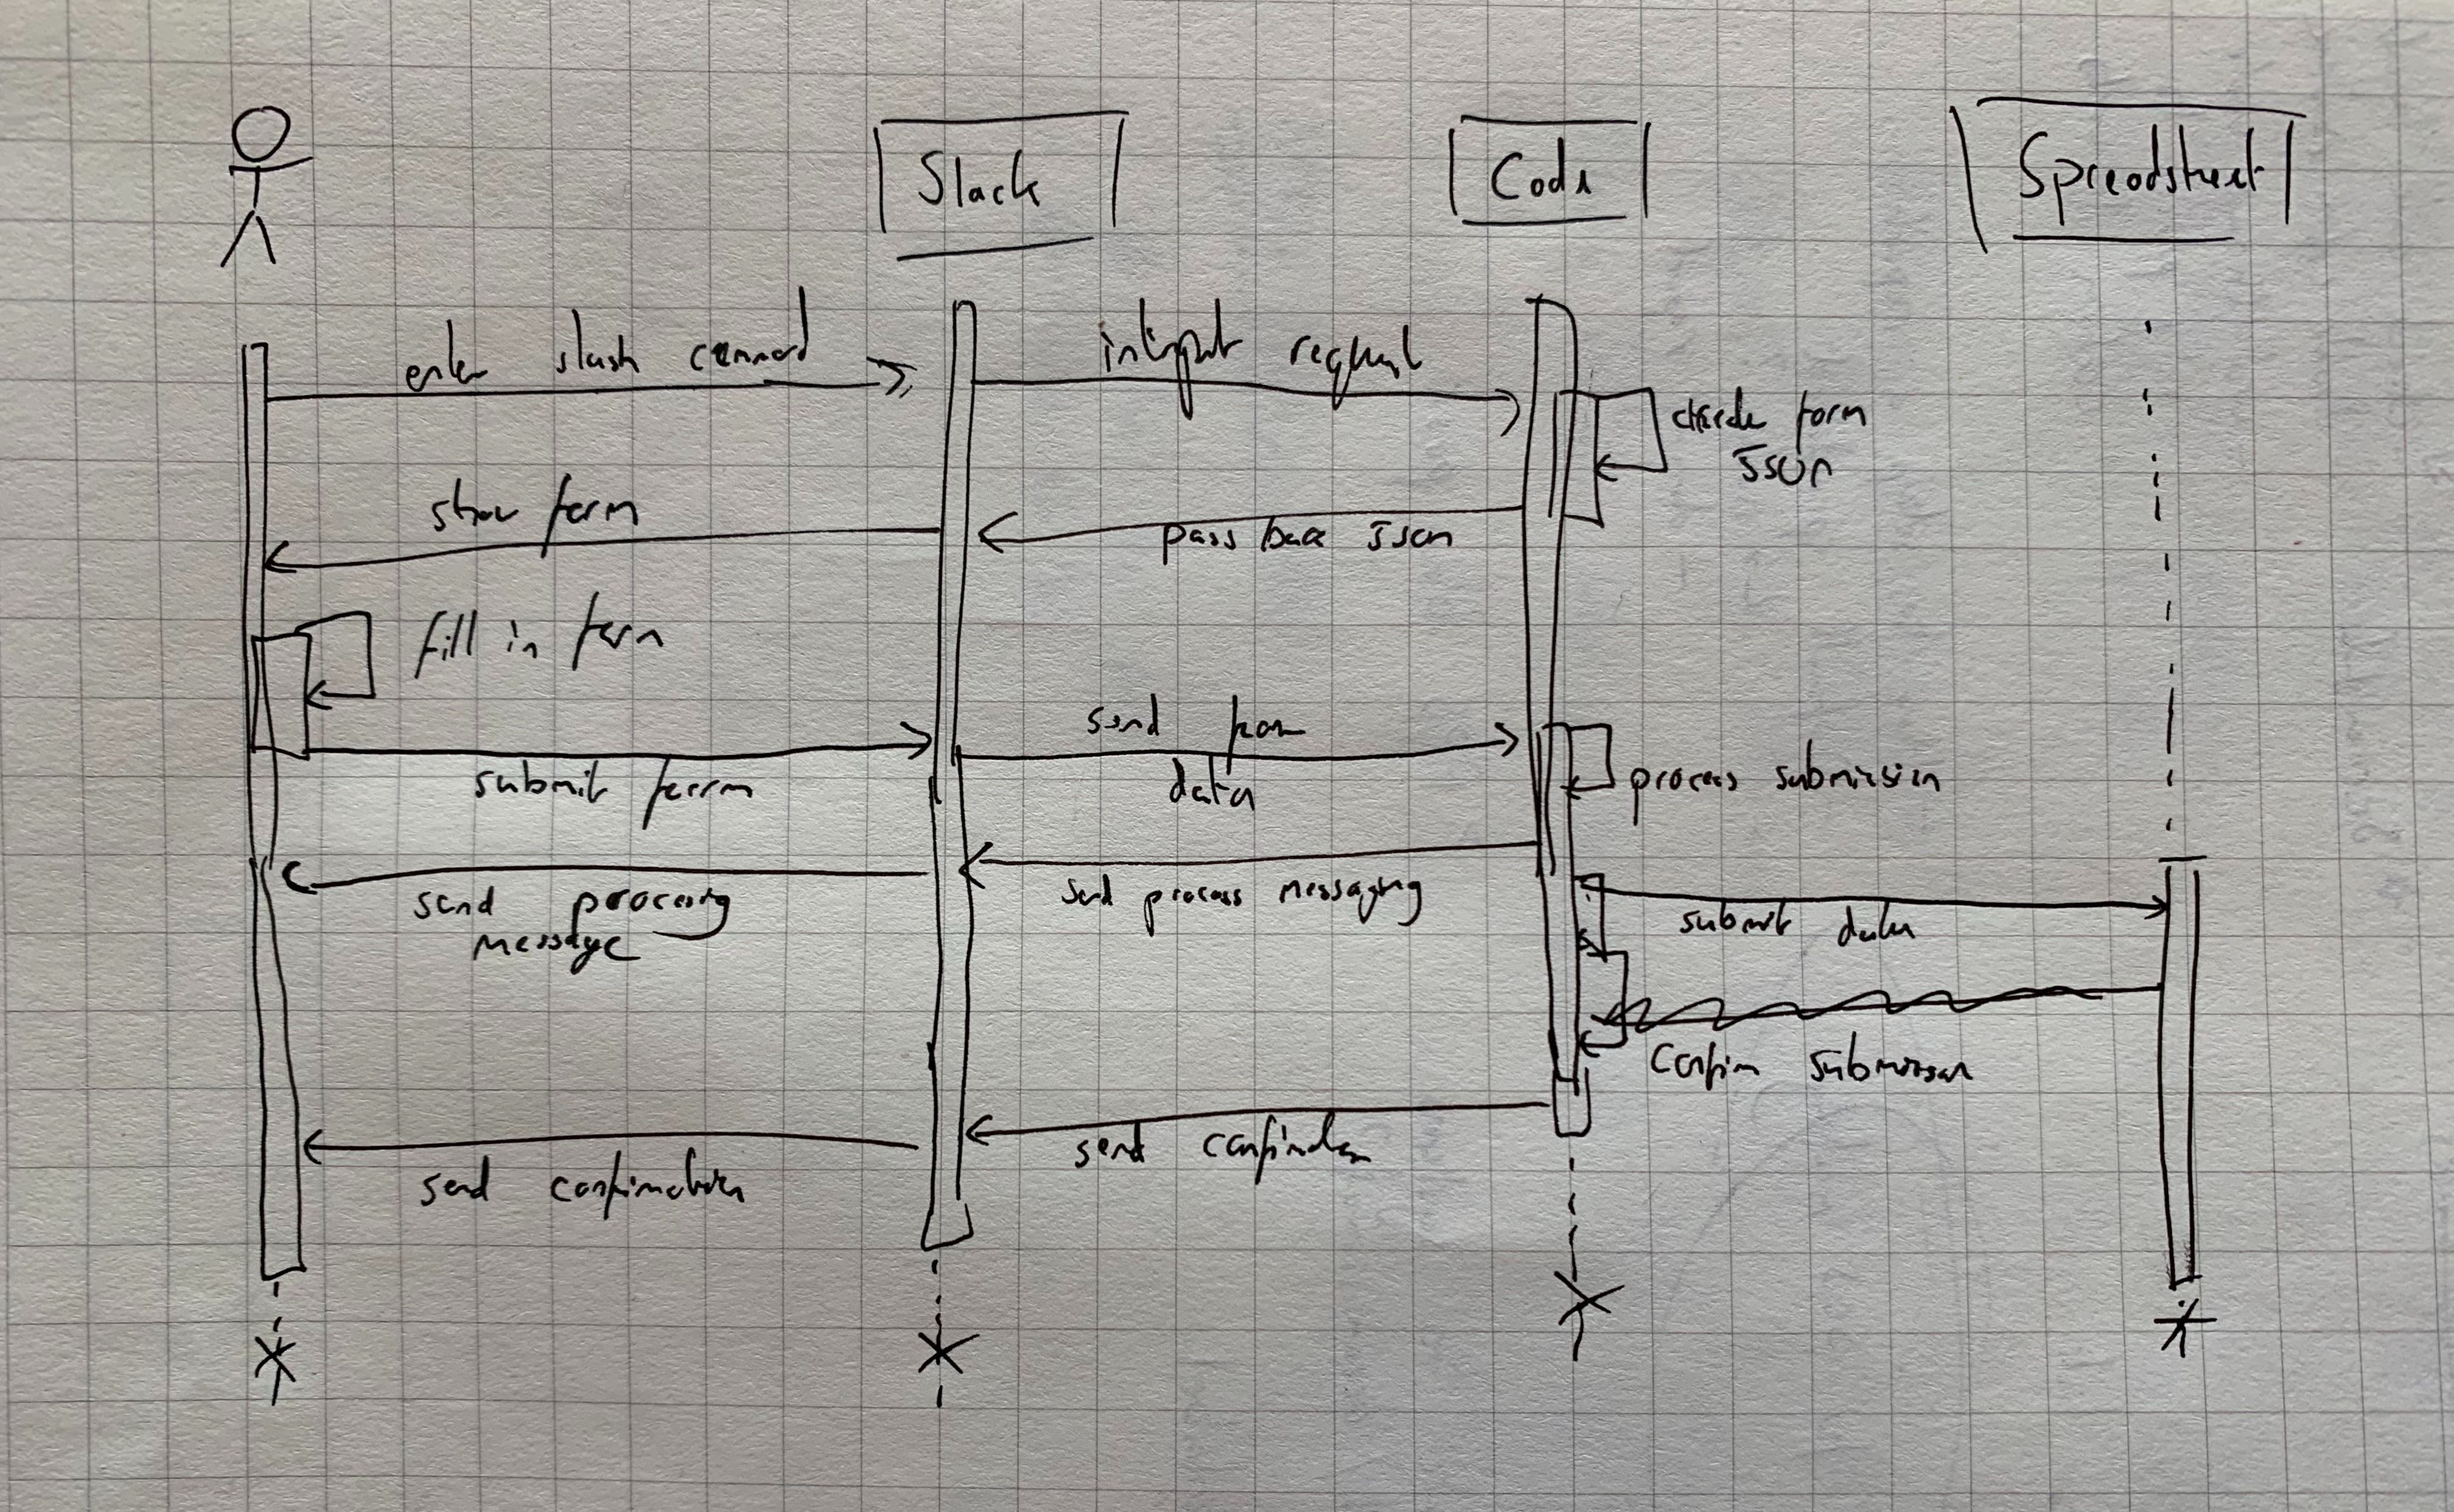 Slack
Code
Spreadsheet
enter slash command
request
form
JSON
show form
pass back JSON
fill in form
send form
data
submit form
process submission
send processing
message
send process messaging
submit data
confirm submission
send confirmation
send confirmation